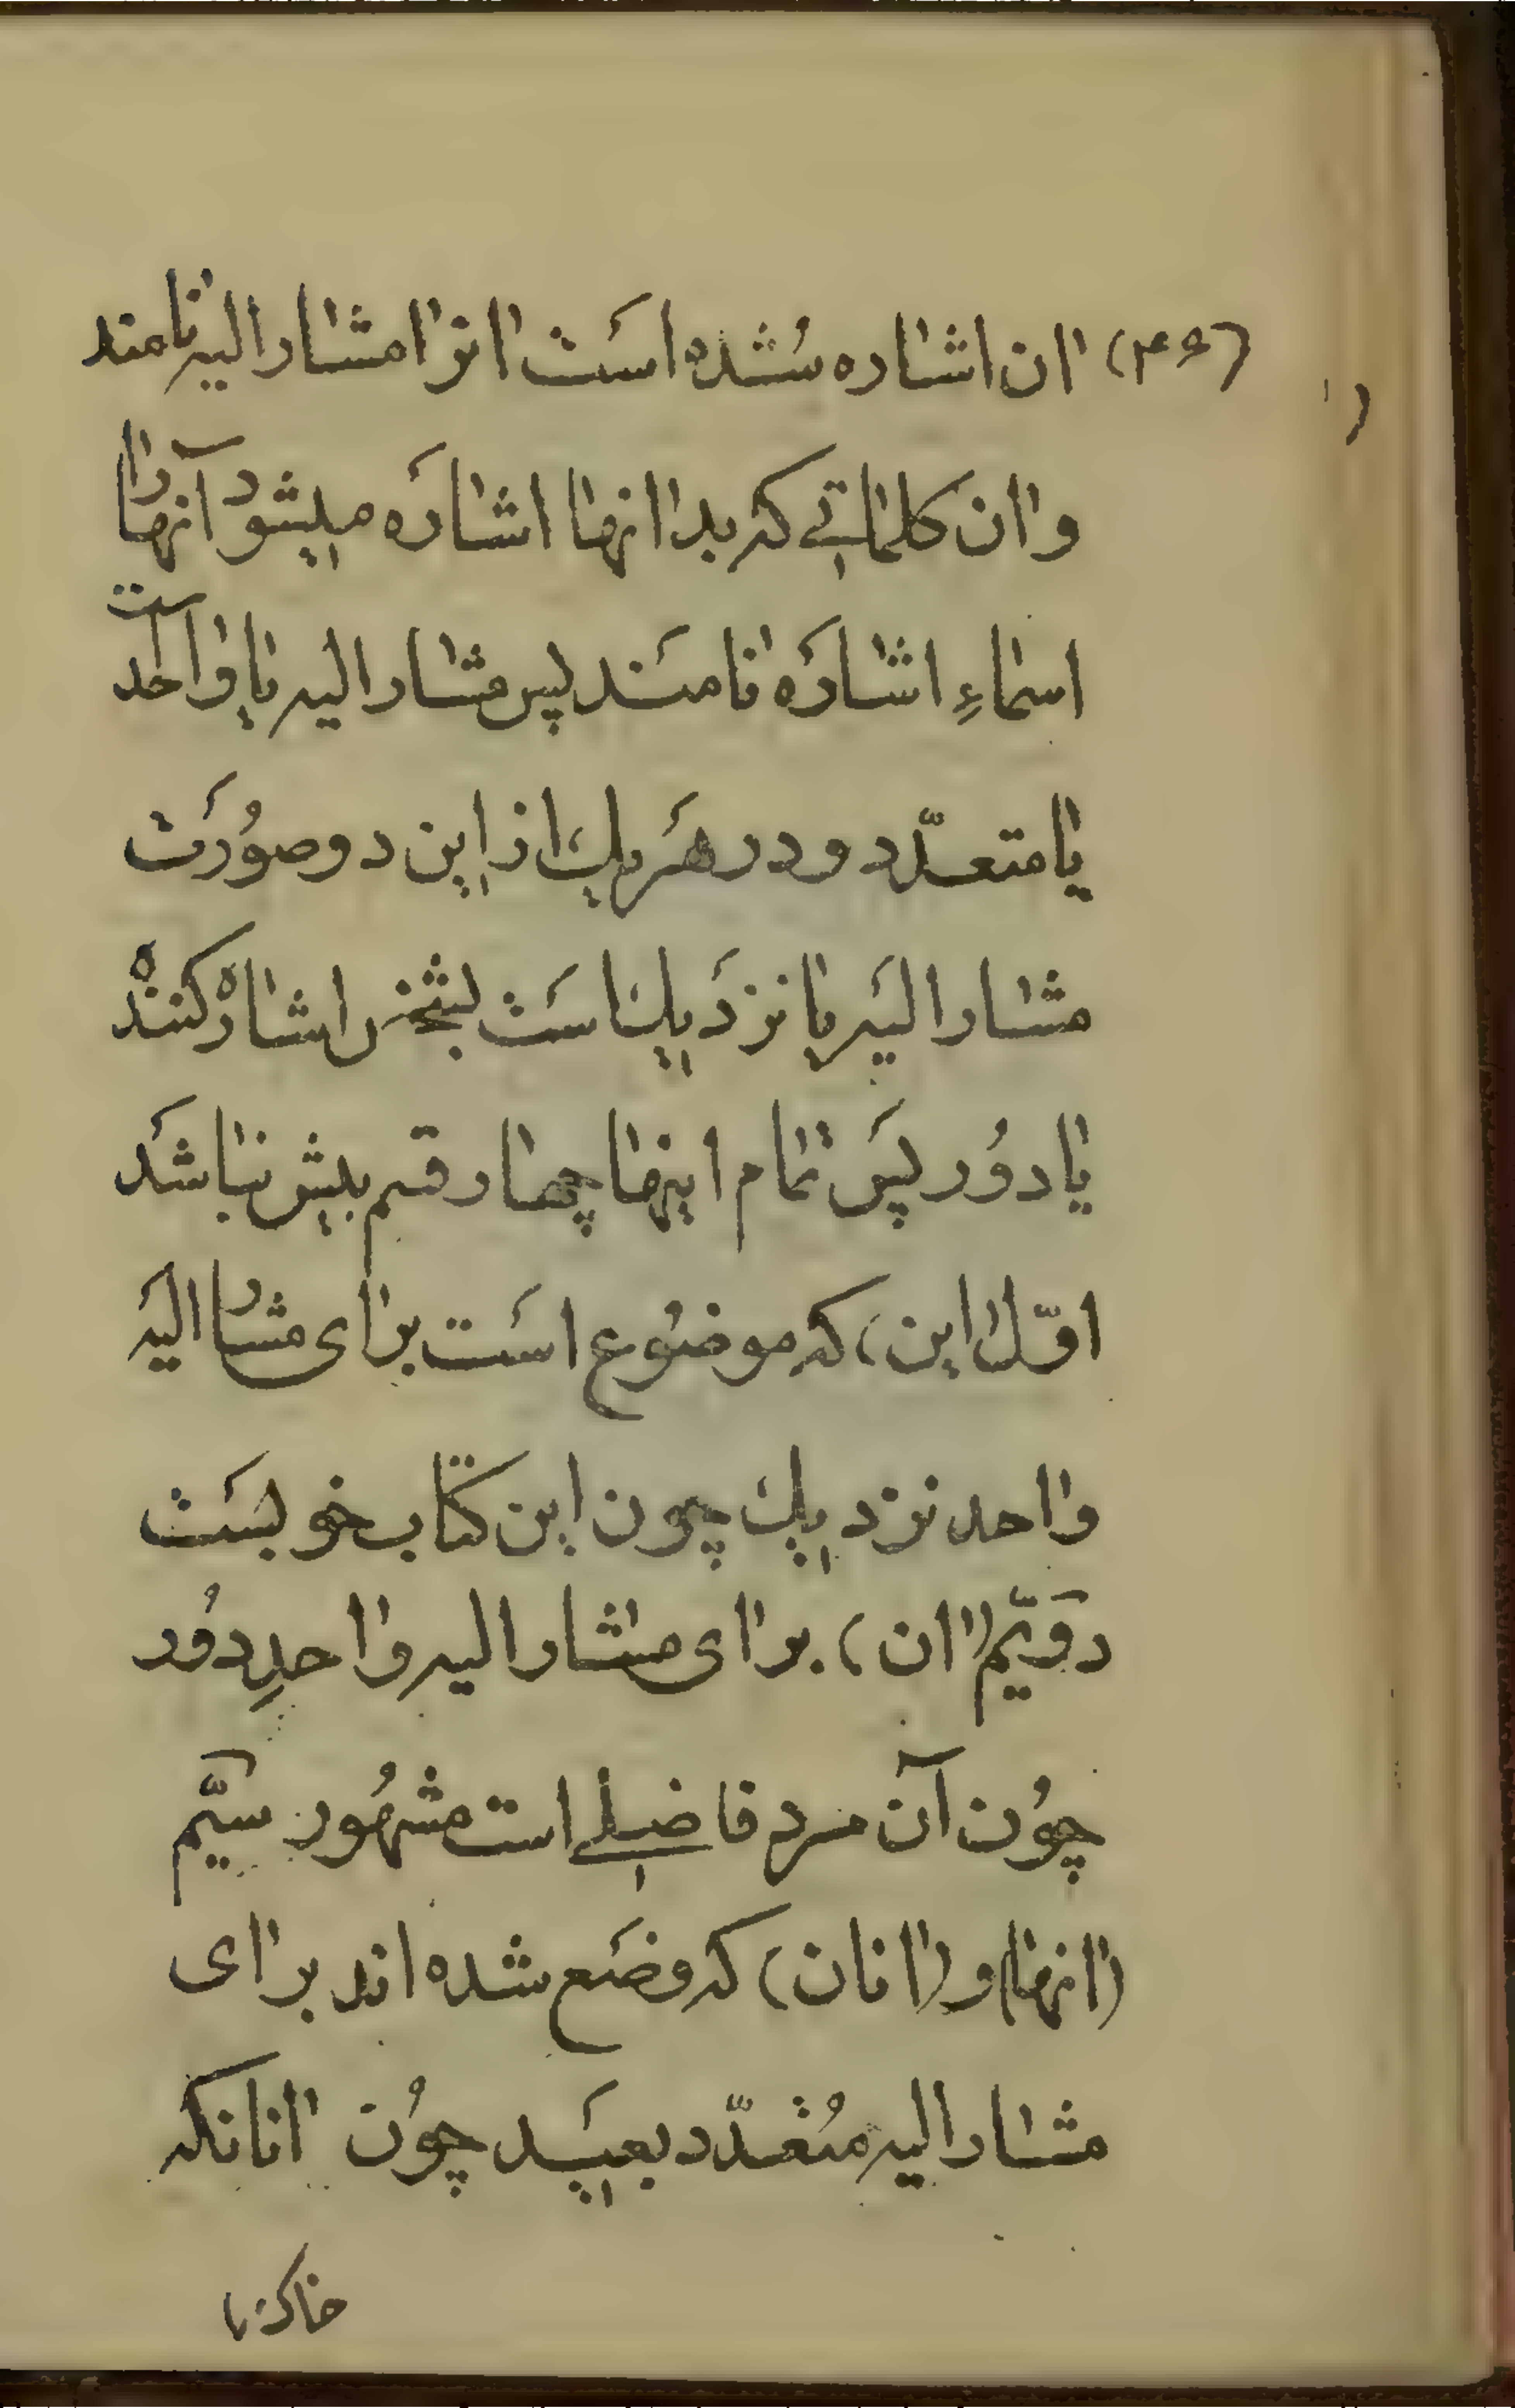 (۴۶) اان اشاره شده است اانرا مشار الیه نامند
واان کلماتی که بداانها اشاره میشود آنها را
اسماءِ اشاره نامند پس مشار الیه یا واحد است
یا متعدّد و در هر یک از این دو صُورَت
مشار الیه یا نزدیک است بشخص اشاره کننده
یا دُور پس تمام اینها چهار قسم بیش نباشد
اوّل این) که موضوع است برای مشار الیه
وااحد نزدیک چون این کتاب خوبست
دویّم (اان) برای مشار الیه وااحدِ دُور
چوُن آن مرد فاضلی است مشهُور سیّم
(اانها) و (اانان) که وضع شده اند برای
مشار الیه مُتعدّد بعید چوُن اانانکه
خاک را